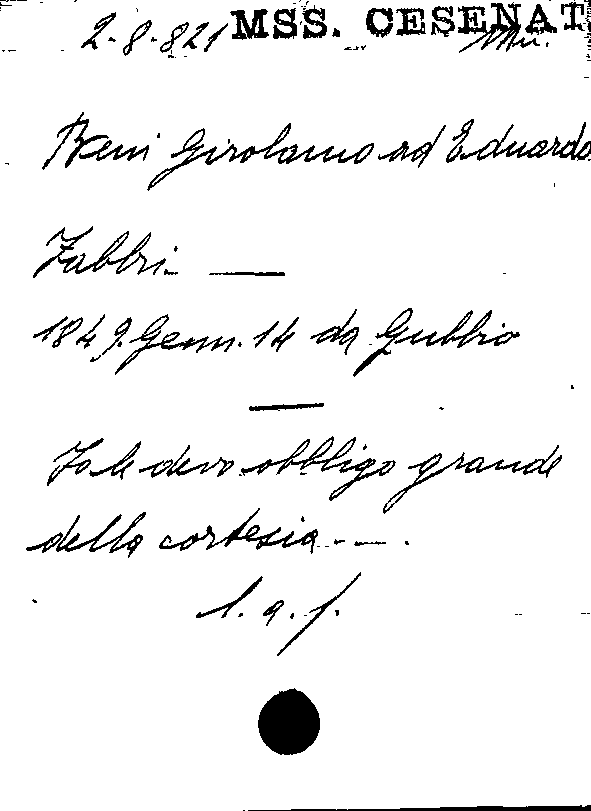 2-8-821 MSS. CESENAT
Mn.
Beni Girolamo ad Eduardo
Fabbri. —
1849. Genn. 14 da Gubbio
—
Io le devo obbligo grande
della cortesia...
l. a. f.